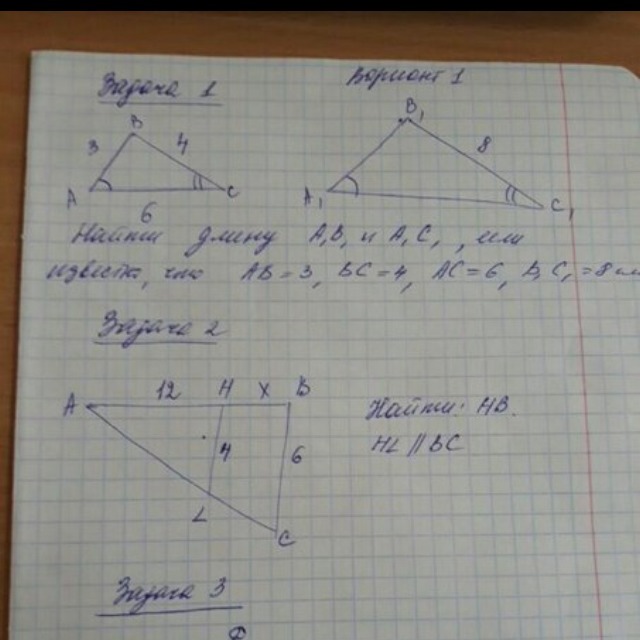 Задача 1 Вариант 1
B B₁
3 4 8
A C A₁ C₁
6
Найти длину A₁B₁ и A₁C₁, или
известно, что AB=3, BC=4, AC=6, B₁C₁=8 см
Задача 2
A 12 H X B
Найти: HB.
4 6 HL || BC
L
C
Задача 3
Ф